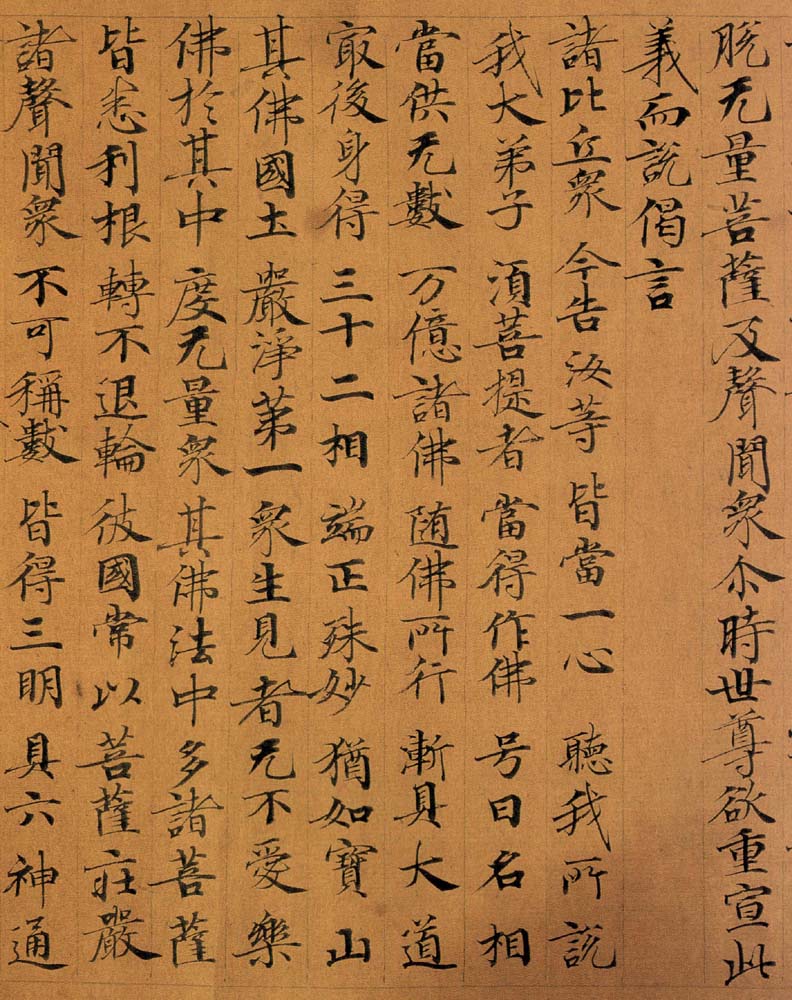 脱无量菩薩及聲聞衆尒時世尊欲重宣此
義而說偈言
諸比丘衆 今告汝等 皆當一心 聽我所説
我大弟子 湏菩提者 當得作佛 号曰名相
當供无數 万億諸佛 随佛所行 漸具大道
㝡後身得 三十二相 端正殊妙 猶如寶山
其佛國土 嚴淨第一 衆生見者 无不愛樂
佛於其中 度无量衆 其佛法中 多諸菩薩
皆悉利根 轉不退輪 彼國常以 菩薩莊嚴
諸聲聞衆 不可稱數 皆得三明 具六神通